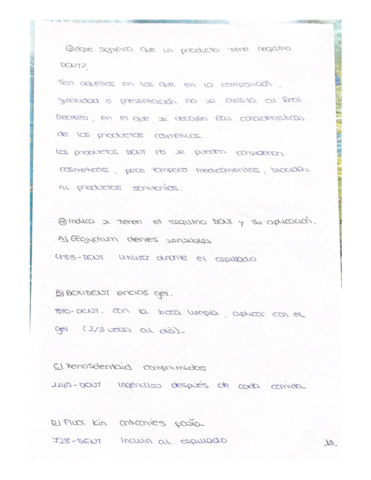 ¿Que significa que un producto tiene registro
DENT?.
Son aquellos en los que en la composición,
finalidad o presentación no se ajusta al Real
Decreto, en el que se recogen las características
de los productos cosméticos.
Los productos DENT no se pueden considerar
cosméticos, pero tampoco medicamentos, biocidas
ni productos sanitarios.
Indica si tienen el registro DENT y su aplicación.
A) Elgydium dientes sensibles
488-DENT Utilizar durante el cepillado
B) BEXIDENT encías gel.
-DENT. Con la boca limpia, aplicar con el
gel (2/3 veces al día).
C) Xerosdentaid comprimidos
-DENT Ingerirlos después de cada comida.
D) Fluor Kin anticaries pasta.
728-DENT Incluir al cepillado
13.